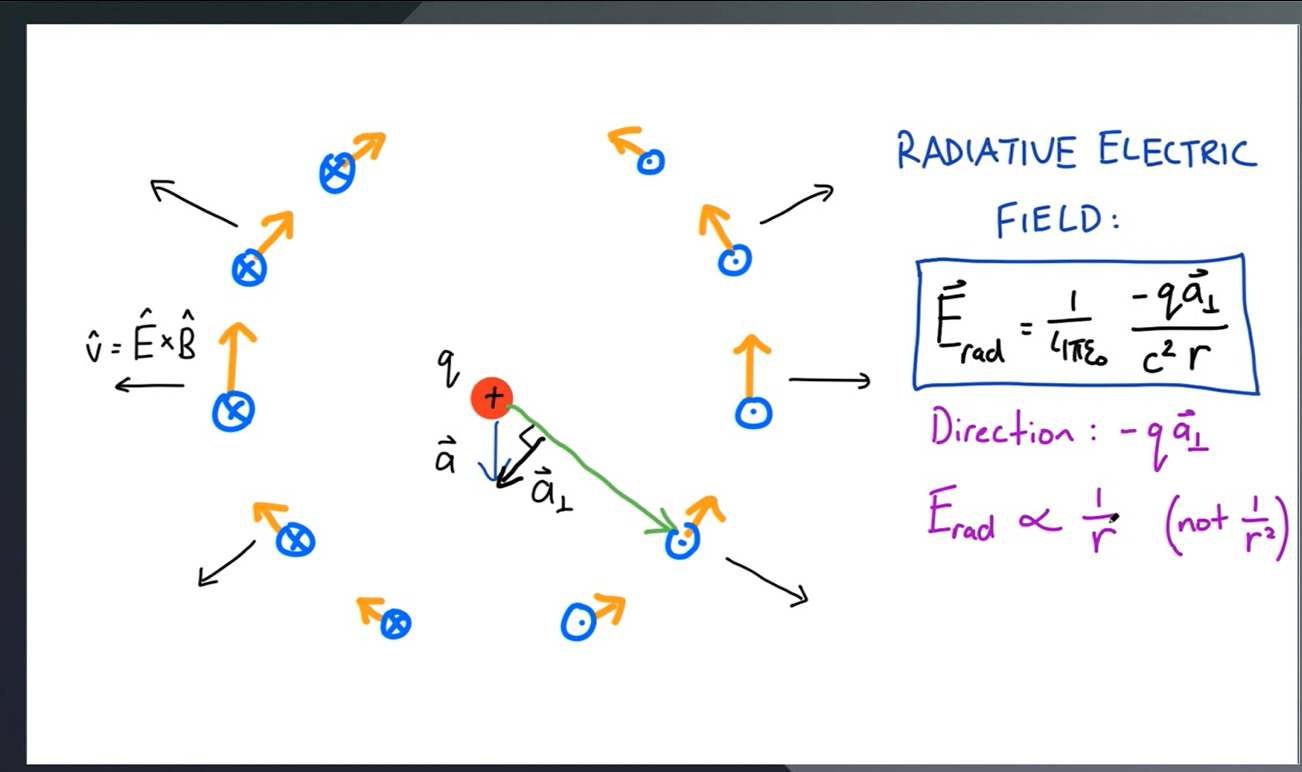 RADIATIVE ELECTRIC
FIELD:
v̂ = Ê × B̂
q
+
a⃗
a⃗⊥
E⃗rad = 1/4πε₀ -qa⃗⊥/c² r
Direction: -qa⃗⊥
Erad ∝ 1/r (not 1/r²)